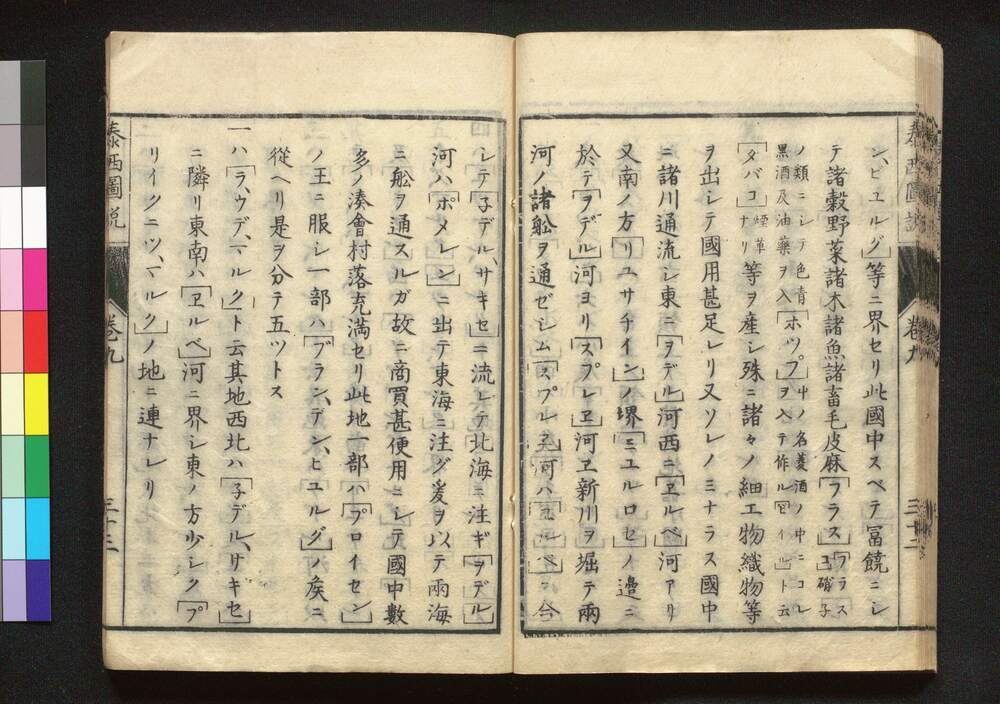 シ、ビユルグ」等ニ界セリ此國中スベテ冨饒ニシ
テ諸穀野菜諸木諸魚諸畜毛皮麻「フラス「フラス硝子
ノ類ニシテ色青「ホツプ」中ノ名菱酒ノ中ニコレ
黒酒及油藥ヲ入ヲ入テ作ル
「タバコ」煙草ナリ等ヲ産シ殊ニ諸々ノ細工物織物等
ヲ出シテ國用甚足レリ又ソレノミナラス國中
ニ諸川通流シ東ニ「ヲデル」河西ニ「ヱルベ」河アリ
又南ノ方「リユサチイン」ノ堺「ミユルロセ」ノ邉ニ
於テ「ヲデル」河ヨリ「スプレヱ」河ヱ新川ヲ堀テ兩
河ノ諸舩ヲ通ゼシム「スプレヱ」河ハ「ヱルベ」ニ合
シテ「子デル、サキセ」ニ流レテ北海ニ注ギ「ヲデル」
河ハ「ポメレン」ニ出テ東海ニ注グ爰ヲ以テ兩海
ニ舩ヲ通スルガ故ニ商買甚便用ニシテ國中數
多ノ湊會村落充満セリ此地一部ハ「プロイセン」
ノ王ニ服シ一部ハ「ブラン、デン、ビユルグ」ノ矦ニ
從ヘリ是ヲ分テ五ツトス
一ハ「ラ、ウデ、マルク」ト云其地西北ハ「子デル、サキセ」
ニ隣リ東南ハ「ヱルベ」河ニ界シ東ノ方少シク「プ
リイクニツ、マルク」ノ地ニ連ナレリ
泰西圖説
巻九
三十三